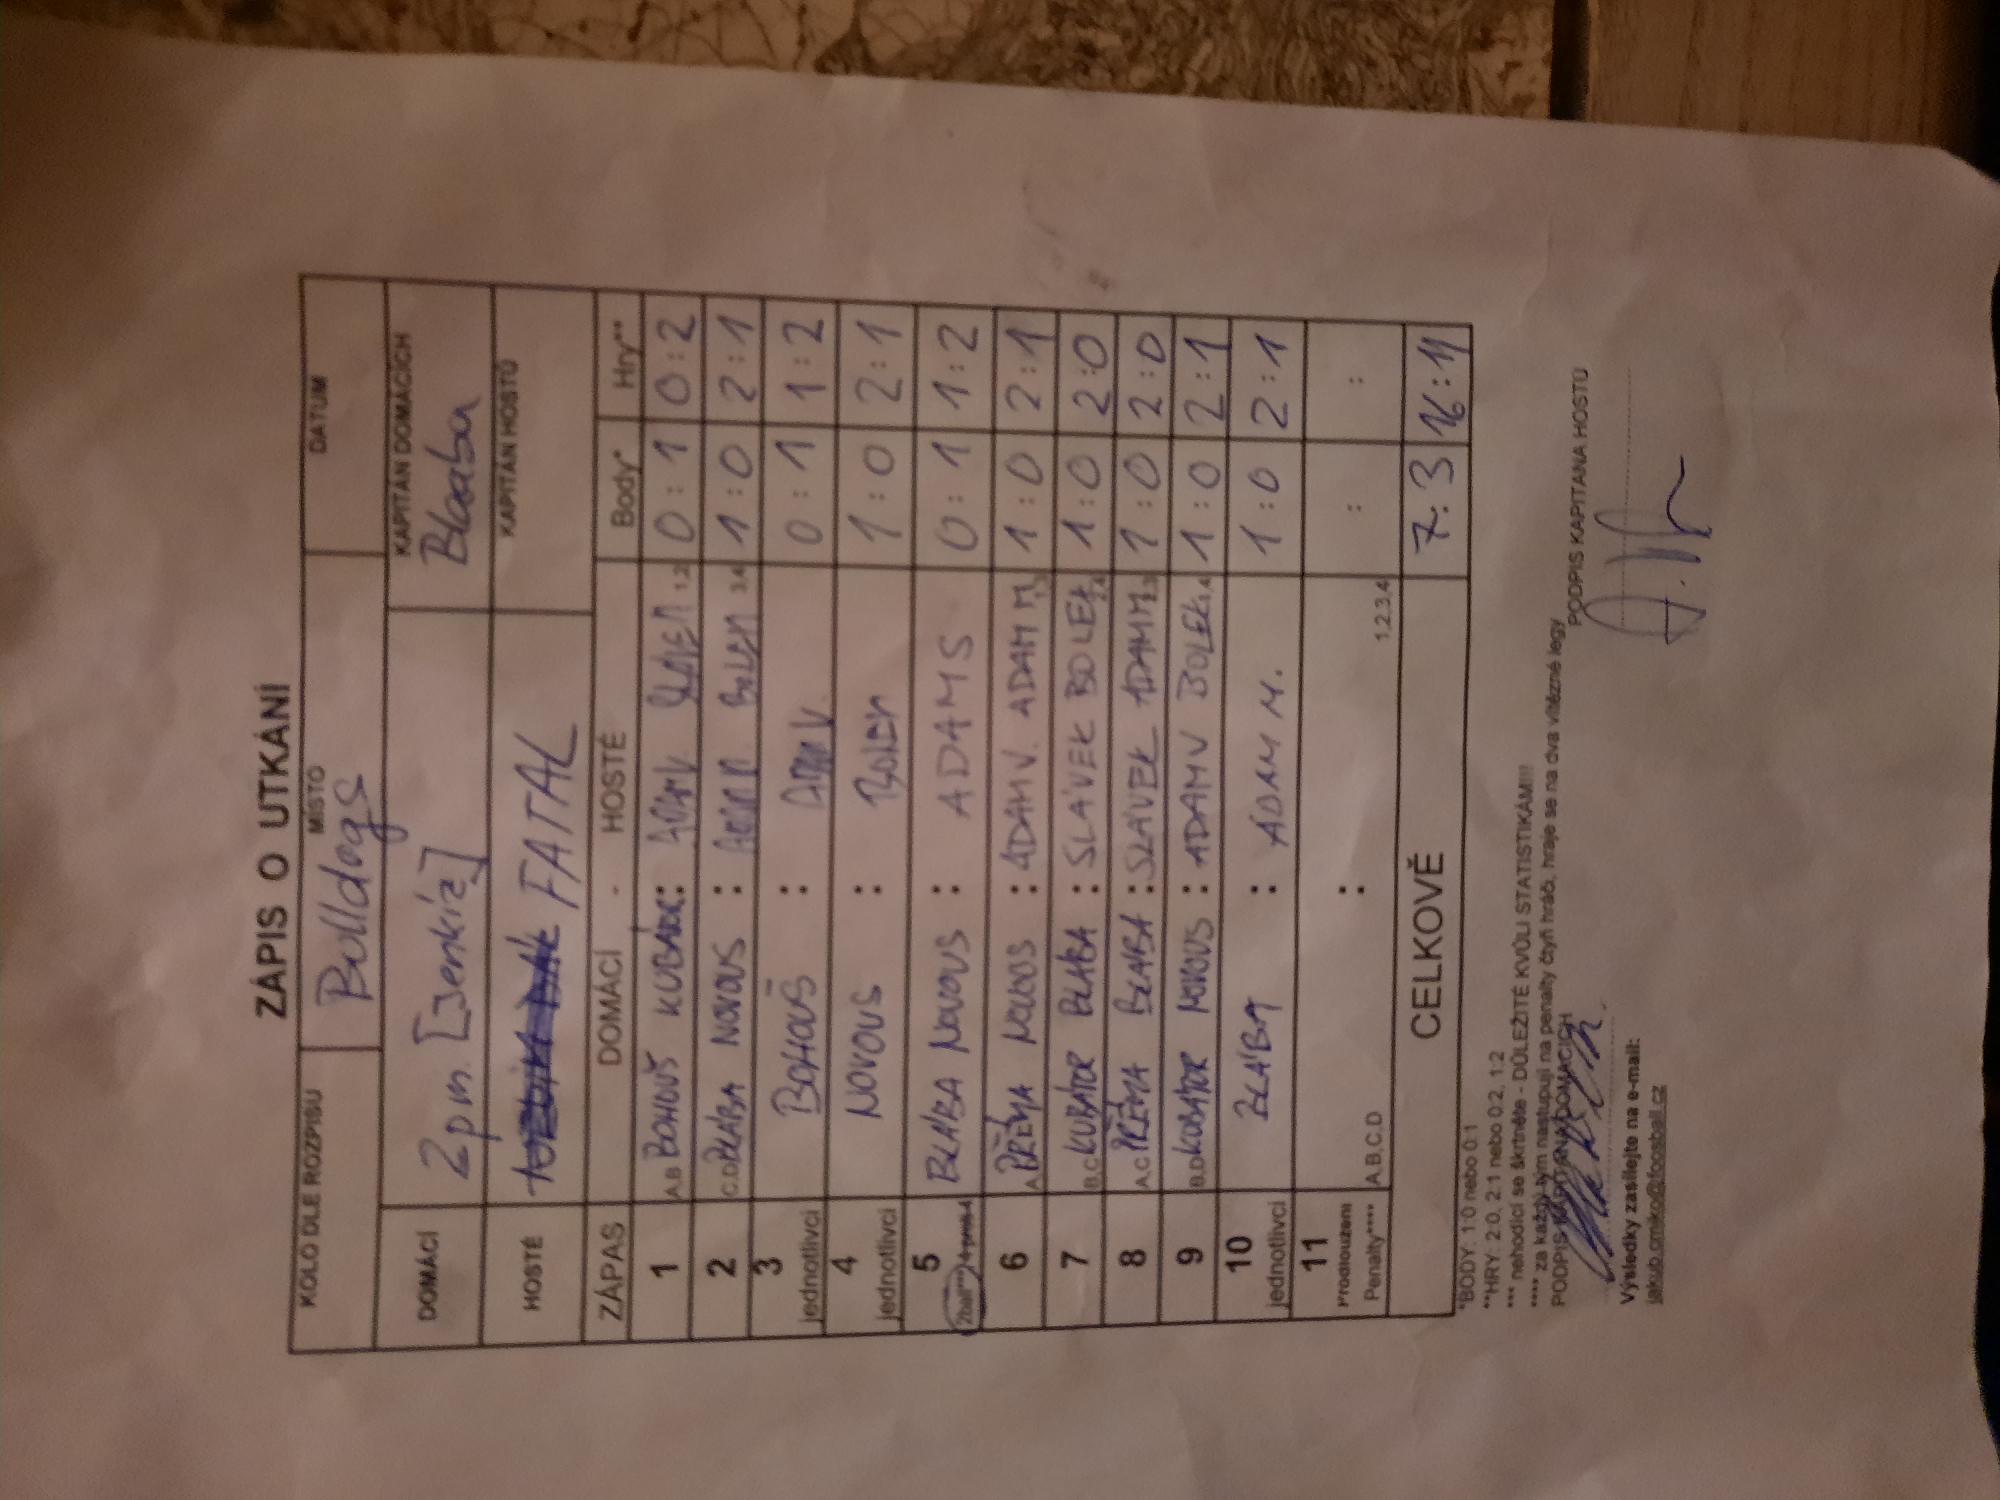 ZÁPIS O UTKÁNÍ
KOLO DLE ROZPISU MÍSTO DATUM
Bulldogs
DOMÁCÍ 2pm. [Jenkíz] KAPITÁN DOMÁCÍCH
Blaaba
HOSTÉ FATAL KAPITÁN HOSTŮ
ZÁPAS DOMÁCÍ - HOSTÉ Body* Hry**
1 A.B BOHOUŠ KUBÁTOR : ADAM V. SLÁVEK 1,2 0 : 1 0 : 2
2 C.D BLÁBA NOVOUS : ADAM M. BOLEK 3,4 1 : 0 2 : 1
3 jednotlivci BOHOUŠ : ADAM V. 0 : 1 1 : 2
4 jednotlivci NOVOUS : BOLEK 1 : 0 2 : 1
5 2ball*** BLÁBA NOVOUS : ADAM S 0 : 1 1 : 2
6 PŘÉMA NOVOUS : ADAM V. ADAM M 1 : 0 2 : 1
7 B.C KUBÁTOR BLÁBA : SLÁVEK BOLEK 2,4 1 : 0 2 : 0
8 A.C PŘÉMA BLÁBA : SLÁVEK ADAM M 2,3 1 : 0 2 : 0
9 B.D KUBÁTOR NOVOUS : ADAM V BOLEK 1,4 1 : 0 2 : 1
10 jednotlivci BLÁBA : ADAM M. 1 : 0 2 : 1
11 Prodloužení Penalty**** A,B,C,D : 1,2,3,4 : :
CELKOVĚ 7 : 3 16 : 11
*BODY: 1:0 nebo 0:1
**HRY: 2:0, 2:1 nebo 0:2, 1:2
*** nehodící se škrtněte - DŮLEŽITÉ KVŮLI STATISTIKÁM!!!
**** za každý tým nastupují na penalty čtyři hráči, hraje se na dva vítězné legy
PODPIS KAPITÁNA DOMÁCÍCH PODPIS KAPITÁNA HOSTŮ
Výsledky zasílejte na e-mail:
jakub.crnko@foosball.cz